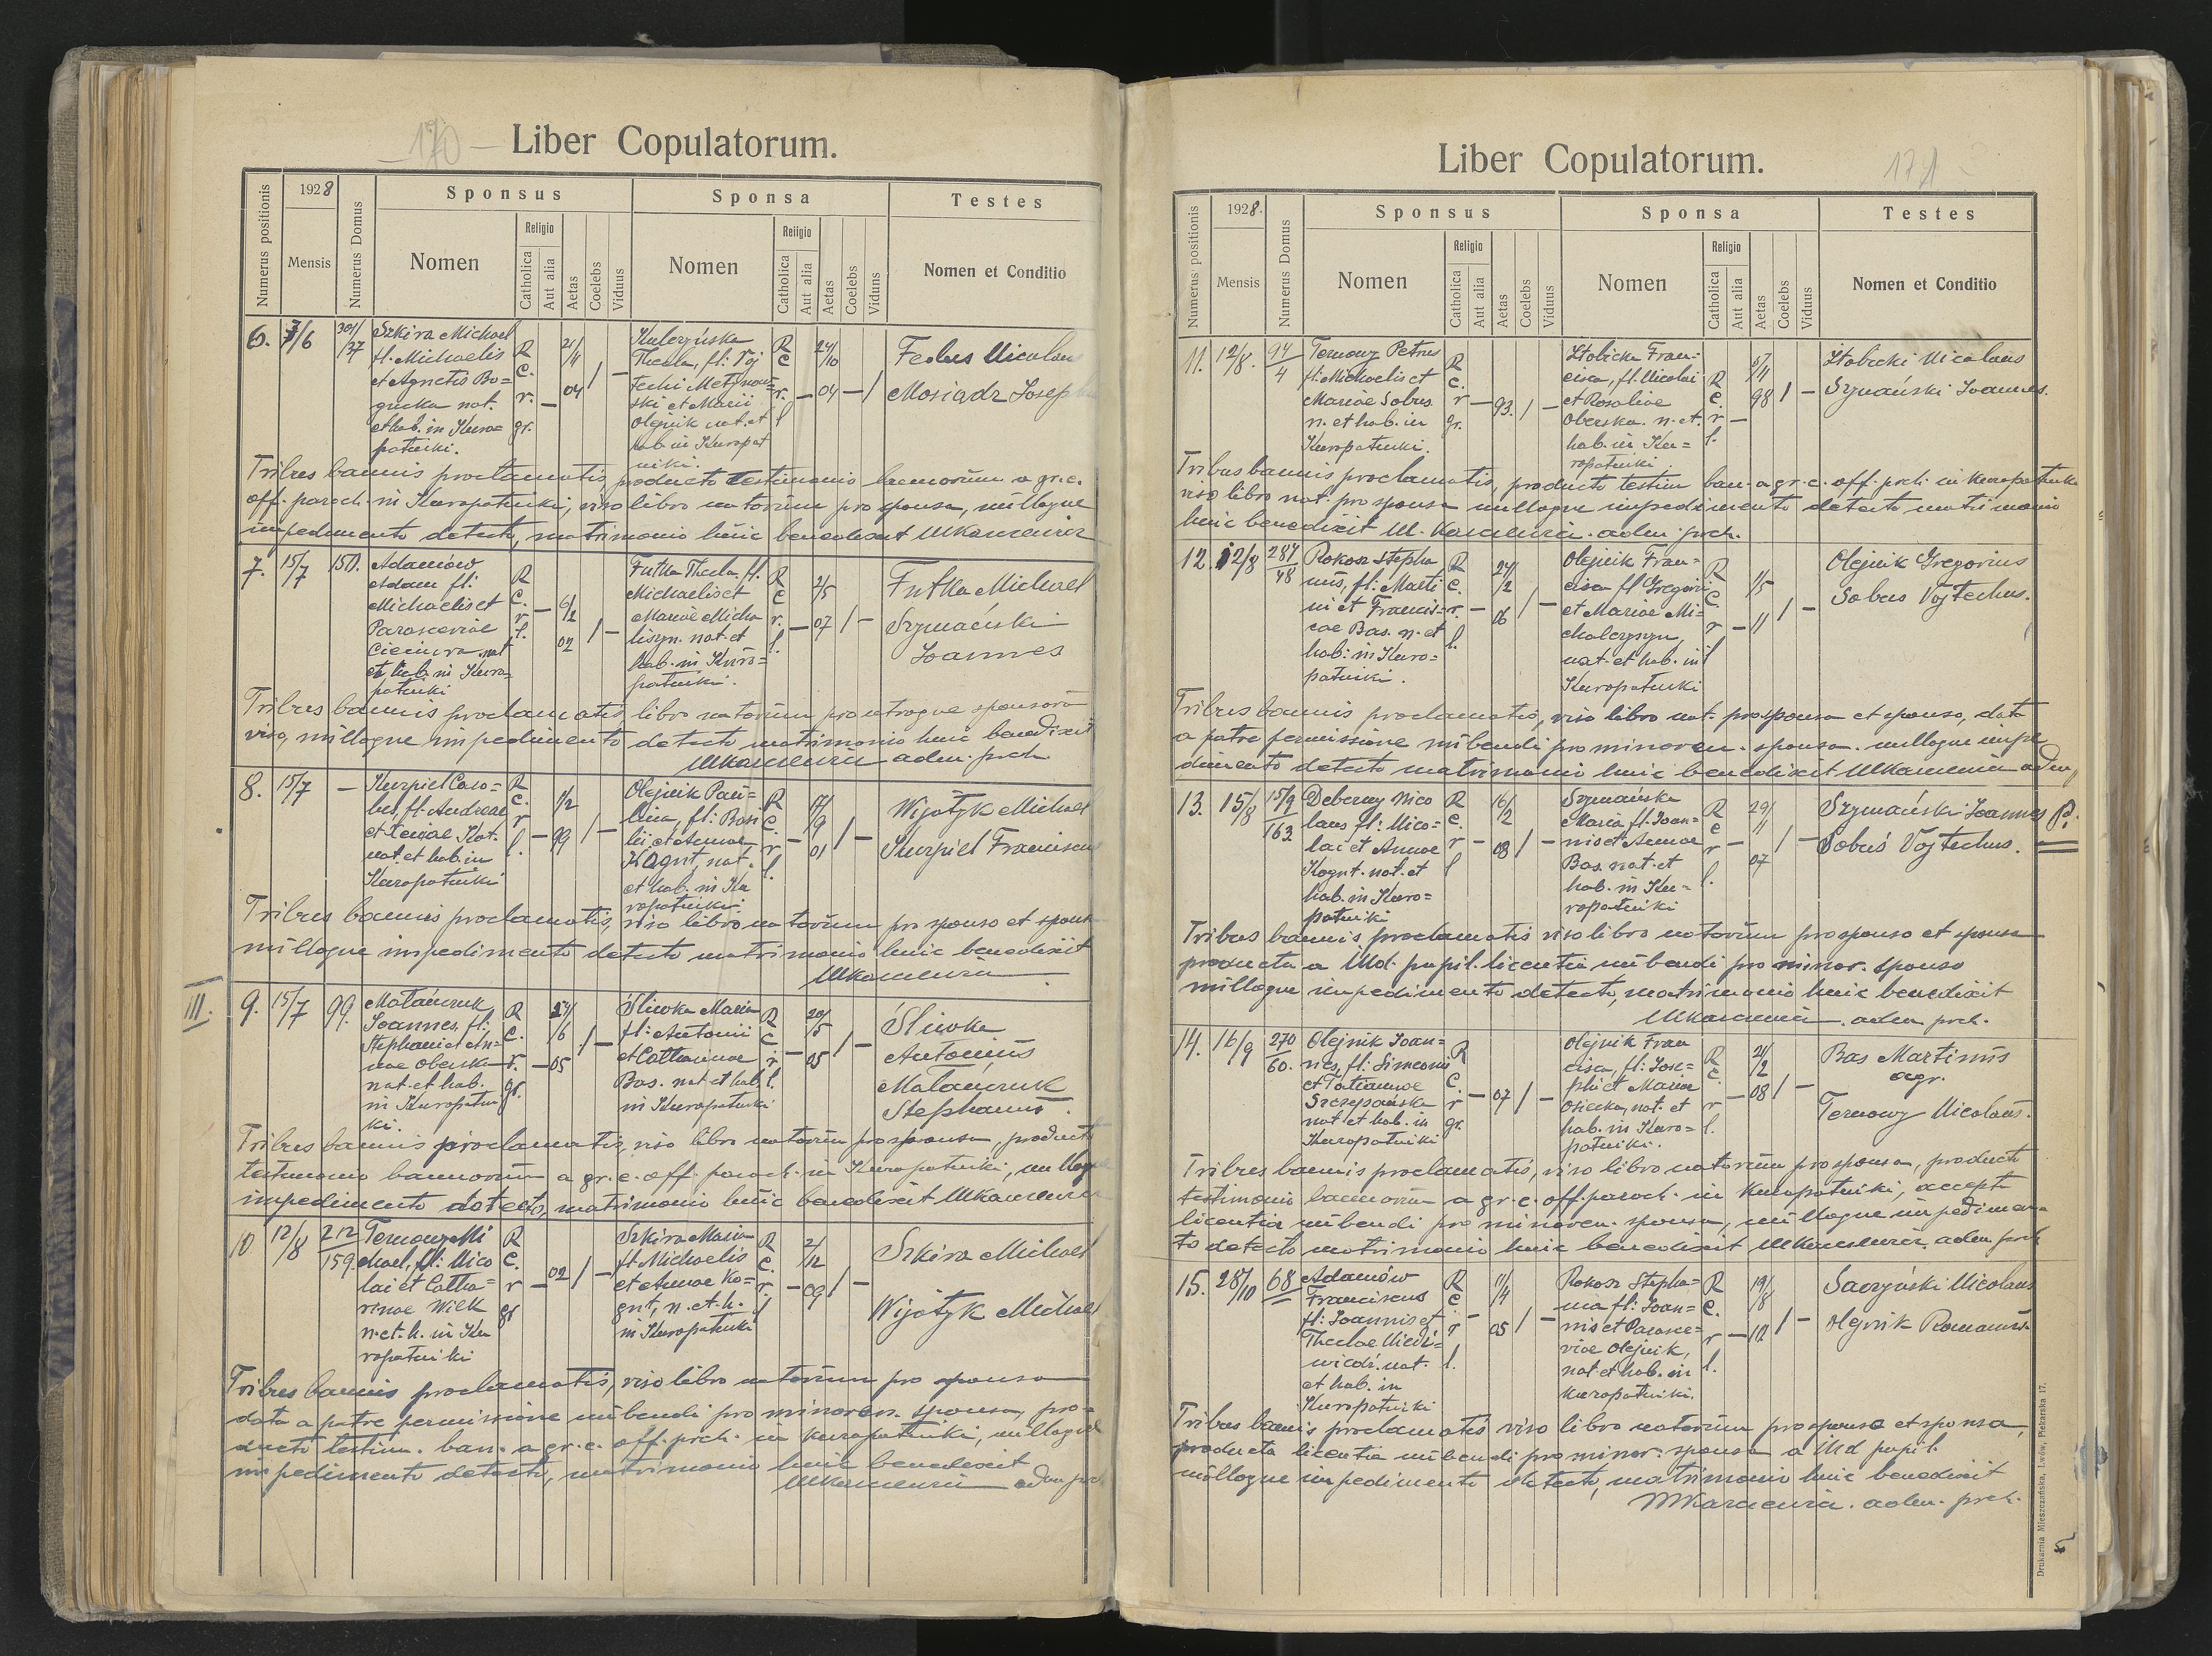 170
Liber Copulatorum.
Numerus positionis
1928
Mensis
Numerus Domus
Sponsus
Nomen
Religio
Catholica
Aut alia
Aetas
Coelebs
Viduus
Sponsa
Nomen
Religio
Catholica
Aut alia
Aetas
Coelebs
Viduus
Testes
Nomen et Conditio
6. 7/6 301/37
Szkira Michael
fl. Michaelis
et Agnetis Bo=
gucka nat.
et hab. in Kuro=
patniki.
R. C. r. gr.
— 21/11 04 / —
Kulczyńska
Thecla, fl. Voj
techi
ski et Marii
Olejnik nat. et
hab. in Kuropat
niki.
R C r. l
— 24/10 04 — /
Fedus Nicolaus
Mosiądz Joseph
Tribus bannis proclamatis, producto testimonio bannorum a gr. c.
off. paroch. in Kuropatniki, viso libro natorum pro sponsa, nulloque
impedimento detecto, matrimonio huic benedixit MKamienia
7. 15/7 150.
Adamów
Adam fl.
Michaelis et
Parasceviae
Cieciura nat
et hab. in Kuro=
patniki
R C. r l.
— 6/2 02 / —
Futka Thecla fl.
Michaelis et
Mariae Micha
liszyn. nat. et
hab. in Kuro=
patniki.
R C r. l.
— 2/5 07 / —
Futka Michael
Szymański
Joannes
Tribus bannis proclamatis, libro natorum pro utroque sponsorū
viso, nulloque impedimento detecto matrimonio huic benedixit
MKamienia adm. prch
8. 15/7 —
Kurpiel Caro=
lus, fl. Andreae
et Xeniae Kot.
nat. et hab. in
Kuropatniki
R C. r l.
— 1/2 99 / —
Olejnik Pau=
lina, fl: Basi
lii et Annae
Kogut, nat.
et hab. in Ku
ropatniki.
R C. r l.
— 17/9 01 / —
Wijatyk Michael
Kurpiel Franciscus
Tribus bannis proclamatis, viso libro natorum pro sponso et sponsa
nulloque impedimento detecto matrimonio huic benedixit
MKamienia
III. 9. 15/7 99.
Matańczuk
Joannes, fl.
Stephani et An=
nae Oberska
nat. et hab.
in Kuropatni
ki.
R C. r. gr.
— 27/6 05 / —
Śliwka Maria
fl: Antonii
et Catharinae
Bas. nat et hab.
in Kuropatniki
R C r l.
— 20/5 05 / —
Śliwka
Antonius
Matańczuk
Stephanus.
Tribus bannis proclamatis, viso libro natorum pro sponsa, producto
testimonio bannorum a gr. c. off. paroch. in Kuropatniki, nulloque
impedimento detecto, matrimonio huic benedixit MKamienia
10 12/8 212/159.
Ternowy Mi
chael, fl: Nico
lai et Catha=
rinae Wilk
n. et. h. in Ku
ropatniki
R C. r gr
— 02 / —
Szkira Maria
fl Michaelis
et Annae Ko=
gut, n. et. h.
in Kuropatniki
R C. r. l
— 2/12 09 / —
Szkira Michael
Wijatyk Michael
Tribus bannis proclamatis, viso libro natorum pro sponsa
data a patre permissione nubendi pro minoren. sponsa, pro=
ducto testim. ban. a gr. c. off. prch. in Kuropatniki, nulloque
impedimento detecto, matrimonio huic benedixit
MKamienia adm prch
171
Liber Copulatorum.
Numerus positionis
1928.
Mensis
Numerus Domus
Sponsus
Nomen
Religio
Catholica
Aut alia
Aetas
Coelebs
Viduus
Sponsa
Nomen
Religio
Catholica
Aut alia
Aetas
Coelebs
Viduus
Testes
Nomen et Conditio
11. 12/8. 94/4
Ternowy Petrus
fl. Michaelis et
Mariae Sobus
n. et hab. in
Kuropatniki.
R C. r gr.
— 93. / —
Stobicka Fran=
cisca, fl. Nicolai
et Rosaliae
Oberska. n. et.
hab. in Ku=
ropatniki.
R C. r l.
— 98 / —
Stobicki Nicolaus
Szymański Joannes.
Tribus bannis proclamatis, producto testim ban. a gr. c. off. prch. in Kuropatniki
viso libro nat. pro sponsa nulloque impedimento detecto matrimonio
huic benedixit M. Kamienia. adm. prch.
12. 12/8 287/48
Rokosz Stepha
nus, fl: Marti
ni et Francis=
cae Bas. n. et
hab. in Kuro=
patniki.
R C. r l.
— 24/2 06 / —
Olejnik Fran=
cisca fl Gregorii
et Mariae Mi=
chalczyszyn,
nat. et hab. in
Kuropatniki
R C. r l
— 1/5 11 / —
Olejnik Gregorius
Sobus Vojtechus.
Tribus bannis proclamatis, viso libro nat. pro sponsa et sponso, data
a patre permissione nubendi pro minoren. sponsa. nulloque impe
dimento detecto matrimonio huic benedixit MKamienia adm,,
13. 15/8 15/9 163.
Deberny Nico
laus fl: Nico=
lai et Annae
Kogut. nat. et
hab. in Kuro=
patniki
R C. r l
— 16/2 08 / —
Szymańska
Maria fl. Joan=
nis et Annae
Bas. nat. et
hab. in Ku=
ropatniki
R C r l.
— 29/11 07 / —
Szymański Joannes
Sobuś Vojtechus.
Tribus bannis proclamatis viso libro natorum pro sponso et sponsa
producta a Iud. pupil. licentia nubendi pro minor. sponso
nulloque impedimento detecto, matrimonio huic benedixit
MKamienia. adm prch.
14. 16/9 270/60.
Olejnik Joan=
nes, fl: Simeonis
et Tatiannae
Szczepańska
nat et hab. in
Kuropatniki
R C. r gr.
— 07 / —
Olejnik Fran
cisca, fl: Jose=
phi et Mariae
Osiecka, nat. et
hab. in Kuro=
patniki.
R C. r l.
— 21/2 08 / —
Bas Martinus
agr.
Ternowy Nicolaus.
Tribus bannis proclamatis, viso libro natorum pro sponsa, producto
testimonio bannorum a gr. c. off. paroch. in Kuropatniki, accepta
licentia nubendi pro minoren. sponsa, nulloque impedimen=
to detecto matrimonio huic benedixit MKamienia adm prch
15. 28/10 68
Adamów
Franciscus
fl: Joannis et
Theclae Niedź=
wiedź. nat.
et hab. in
Kuropatniki
R C r l.
— 11/4 05 / —
Rokosz Stepha=
nia fl: Joan=
nis et Parasce=
viae Olejnik,
nat. et hab. in
Kuropatniki.
R C. r l.
— 19/8 10 / —
Saczyński Nicolaus
Olejnik Romanus.
Tribus bannis proclamatis viso libro natorum pro sponso et sponsa,
producta licentia nubendi pro minor. sponsa a Iud pupil.
nulloque impedimento detecto, matrimonio huic benedixit
MKamienia. adm. prch.
Drukarnia Mieszczańska, Lwów, Piekarska 17.